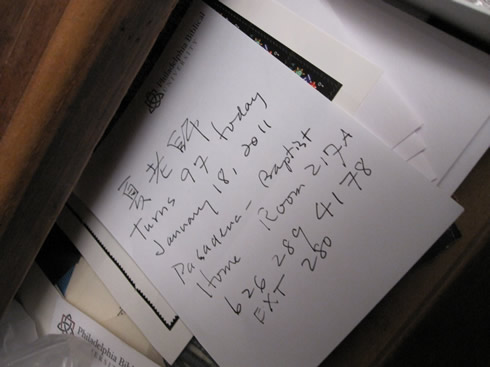 Philadelphia Biblical
UNIVERSITY
夏老師
turns 97 today
January 18, 2011
Pasadena - Baptist
Home Room 217A
626 289 4178
EXT 280
Philadelphia Bibl